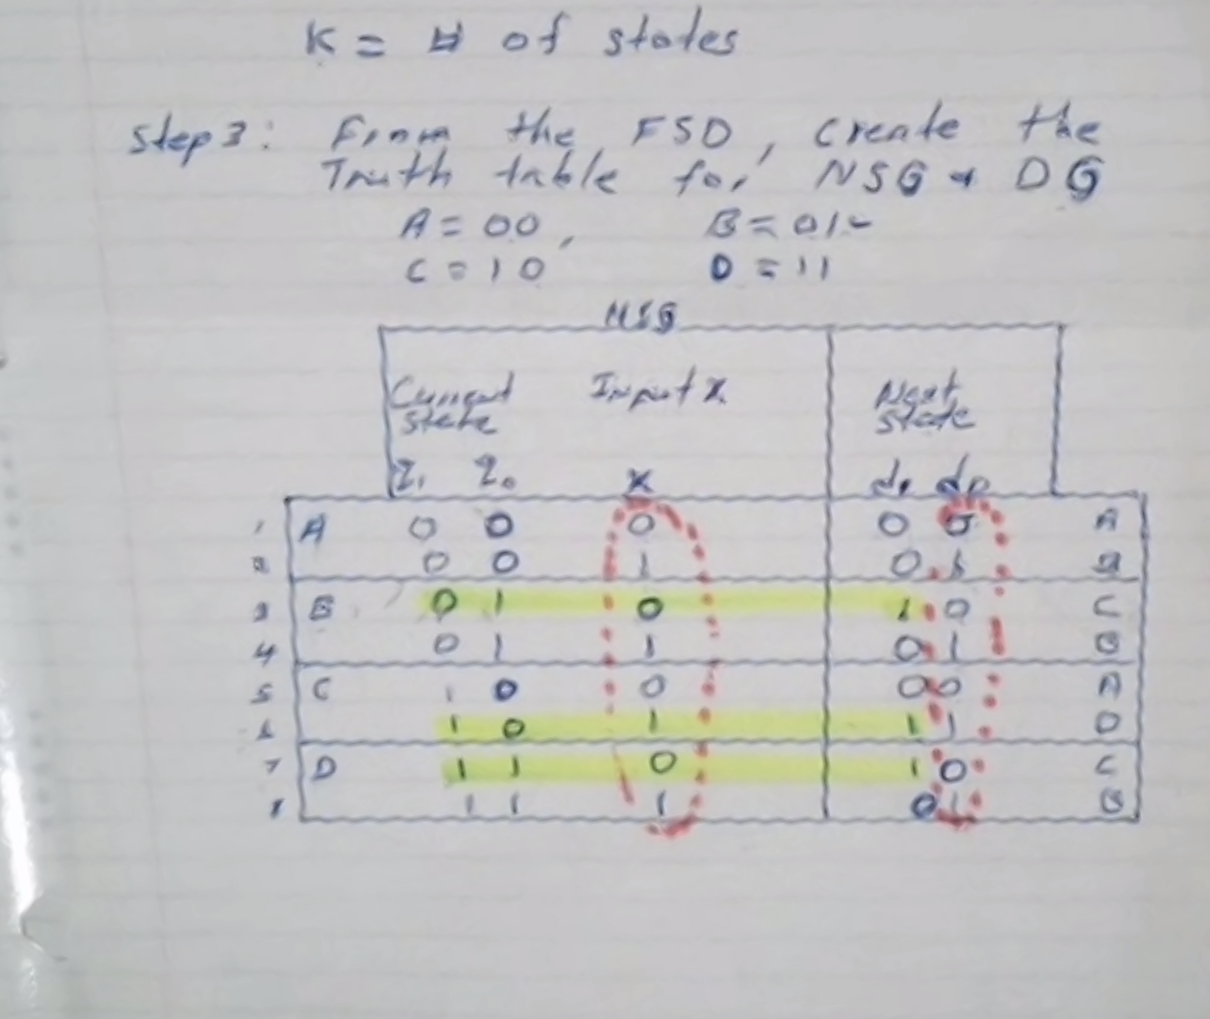 K = # of states
Step 3: From the FSD, create the
Truth table for NSG & DG
A = 00, B = 01
C = 10 D = 11
NSG
Current Input X Next
state state
q1 q0 x d1 d0
1 A 0 0 0 0 0 A
2 0 0 1 0 1 B
3 B 0 1 0 1 0 C
4 0 1 1 0 1 B
5 C 1 0 0 0 0 A
6 1 0 1 1 1 D
7 D 1 1 0 1 0 C
8 1 1 1 0 1 B